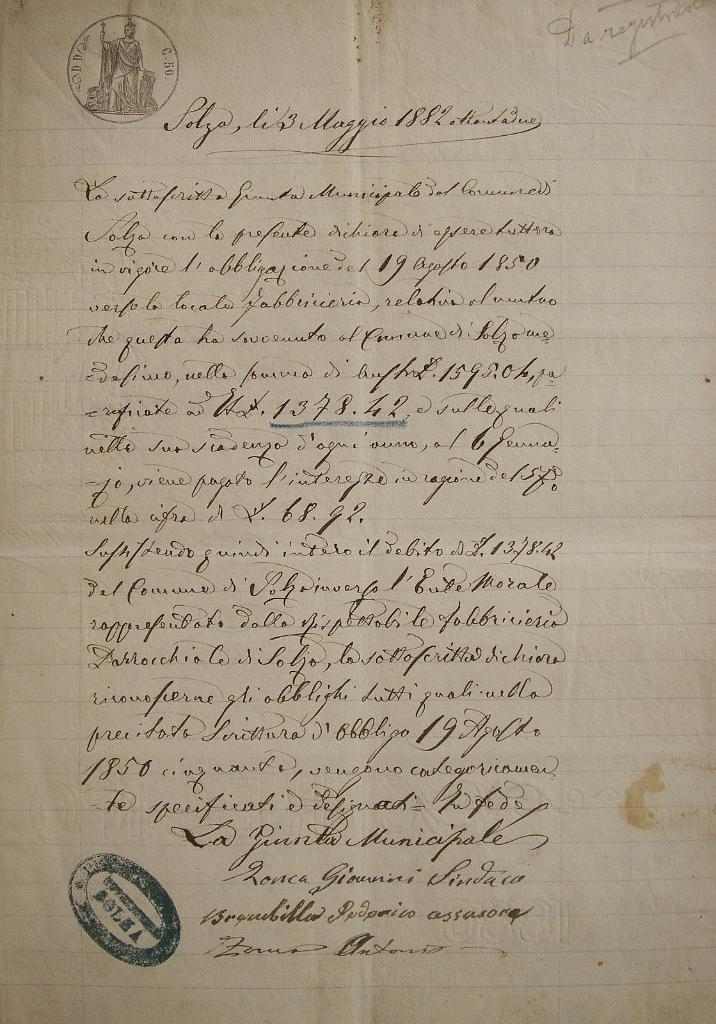 Da registrare
C. 50.
Solza, li 3 Maggio 1882 ottantadue
La sottoscritta Giunta Municipale del Comune di
Solza con la presente dichiara di essere tuttora
in vigore l'obbligazione del 19 Agosto 1850
verso la locale Fabbriceria, relativa al mutuo
che questa ha sovvenuto al Comune di Solza me=
=desimo, nella somma di Austr. L. 1595.04, pa=
=rificate ad It L. 1378.42, e sulle quali
nella sua scadenza d'ogni anno, al 6 Genna=
=jo, viene pagato l'interesse in ragione del 5%
nella cifra di L. 68.92.
Sussistendo quindi intero il debito di L. 1378.42
del Comune di Solza inverso l'Ente Morale
rappresentato dalla rispettabile Fabbriceria
Parrocchiale di Solza, la sottoscritta dichiara
riconoscerne gli obblighi tutti quali nella
precitata Scrittura d'obbligo 19 Agosto
1850 cinquanta, vengono categoricamen=
=te specificati e designati = In fede
La Giunta Municipale
Zonca Giovanni Sindaco
Brambilla assessore
Antonio